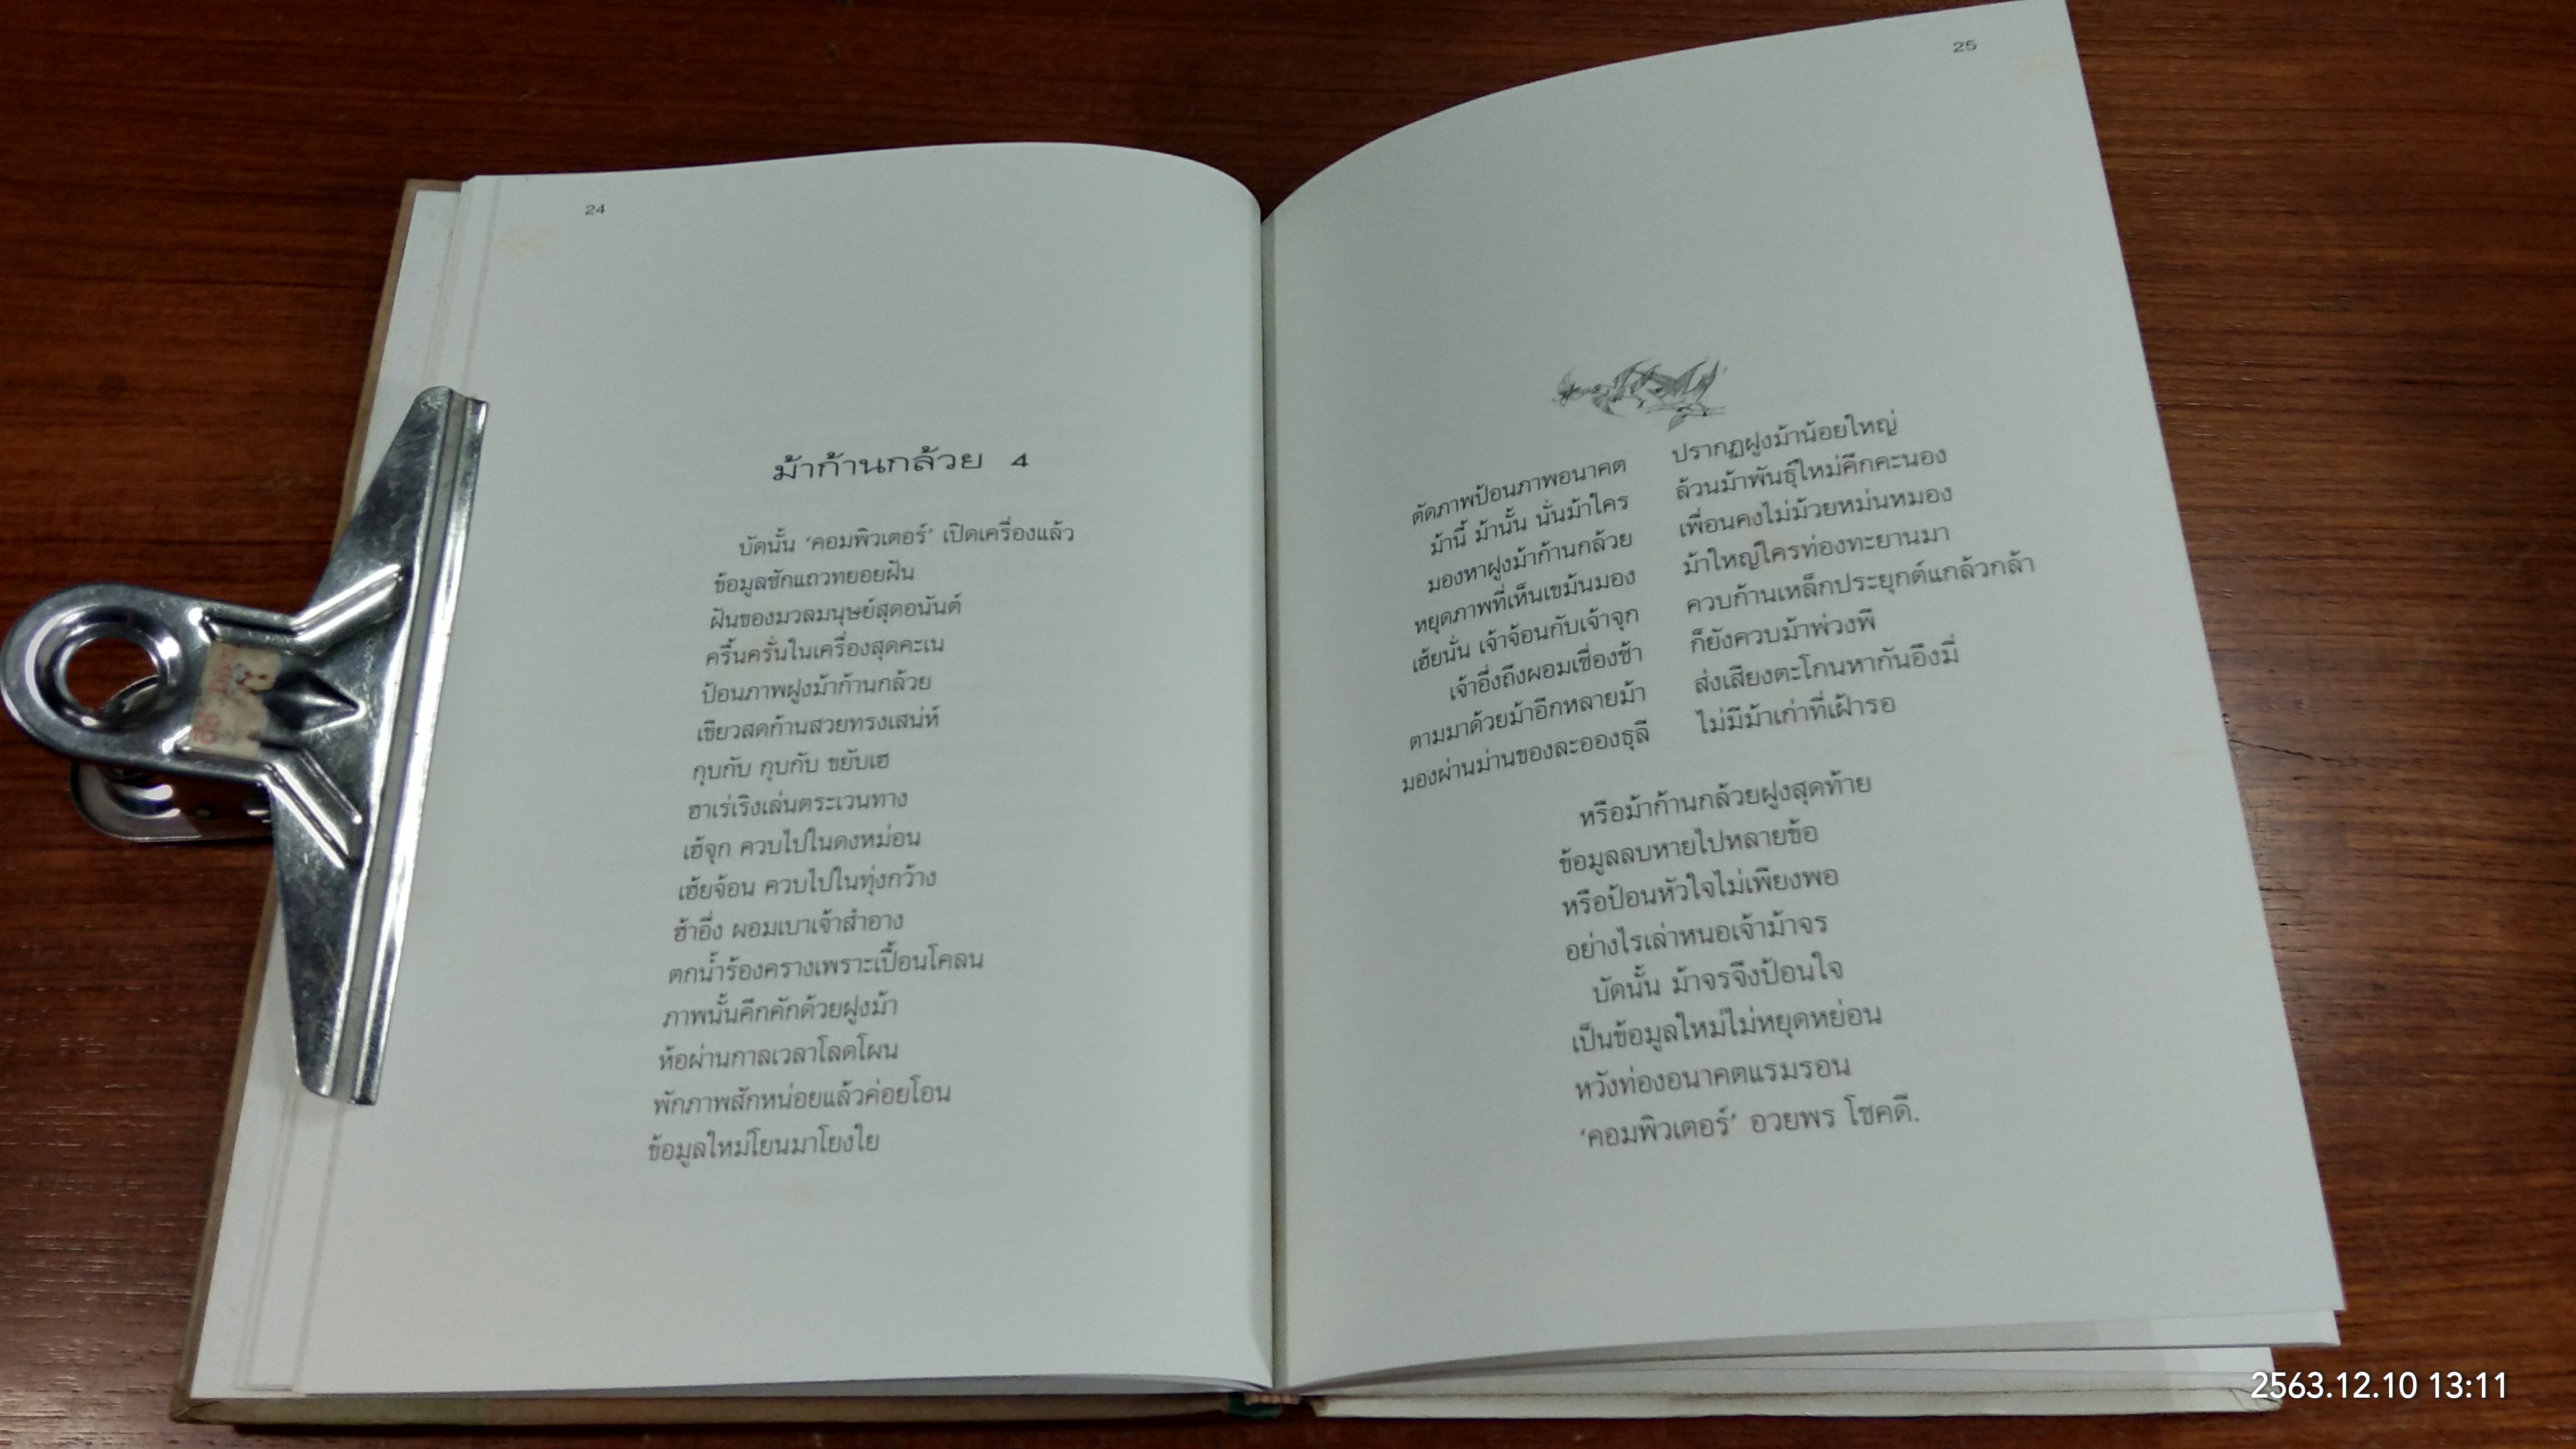 24
ม้าก้านกล้วย 4
บัดนั้น ‘คอมพิวเตอร์’ เปิดเครื่องแล้ว
ข้อมูลชักแถวทยอยฝัน
ฝันของมวลมนุษย์สุดอนันต์
ครื้นครั่นในเครื่องสุดคะเน
ป้อนภาพฝูงม้าก้านกล้วย
เขียวสดก้านสวยทรงเสน่ห์
กุบกับ กุบกับ ขยับเฮ
ฮาเร่เริงเล่นตระเวนทาง
เฮ้จุก ควบไปในดงหม่อน
เฮ้ยจ้อน ควบไปในทุ่งกว้าง
ฮ้าอึ่ง ผอมเบาเจ้าสำอาง
ตกน้ำร้องครางเพราะเปื้อนโคลน
ภาพนั้นคึกคักด้วยฝูงม้า
ห้อผ่านกาลเวลาโลดโผน
พักภาพสักหน่อยแล้วค่อยโอน
ข้อมูลใหม่โยนมาโยงใย
25
ตัดภาพป้อนภาพอนาคต ปรากฏฝูงม้าน้อยใหญ่
ม้านี้ ม้านั้น นั่นม้าใคร ล้วนม้าพันธุ์ใหม่คึกคะนอง
มองหาฝูงม้าก้านกล้วย เพื่อนคงไม่ม้วยหม่นหมอง
หยุดภาพที่เห็นเขม้นมอง ม้าใหญ่ใครท่องทะยานมา
เฮ้ยนั่น เจ้าจ้อนกับเจ้าจุก ควบก้านเหล็กประยุกต์แกล้วกล้า
เจ้าอึ่งถึงผอมเชื่องช้า ก็ยังควบม้าพ่วงพี
ตามมาด้วยม้าอีกหลายม้า ส่งเสียงตะโกนหากันอึงมี่
มองผ่านม่านของละอองธุลี ไม่มีม้าเก่าที่เฝ้ารอ
หรือม้าก้านกล้วยฝูงสุดท้าย
ข้อมูลลบหายไปหลายข้อ
หรือป้อนหัวใจไม่เพียงพอ
อย่างไรเล่าหนอเจ้าม้าจร
บัดนั้น ม้าจรจึงป้อนใจ
เป็นข้อมูลใหม่ไม่หยุดหย่อน
หวังท่องอนาคตแรมรอน
‘คอมพิวเตอร์’ อวยพร โชคดี.
2563.12.10 13:11